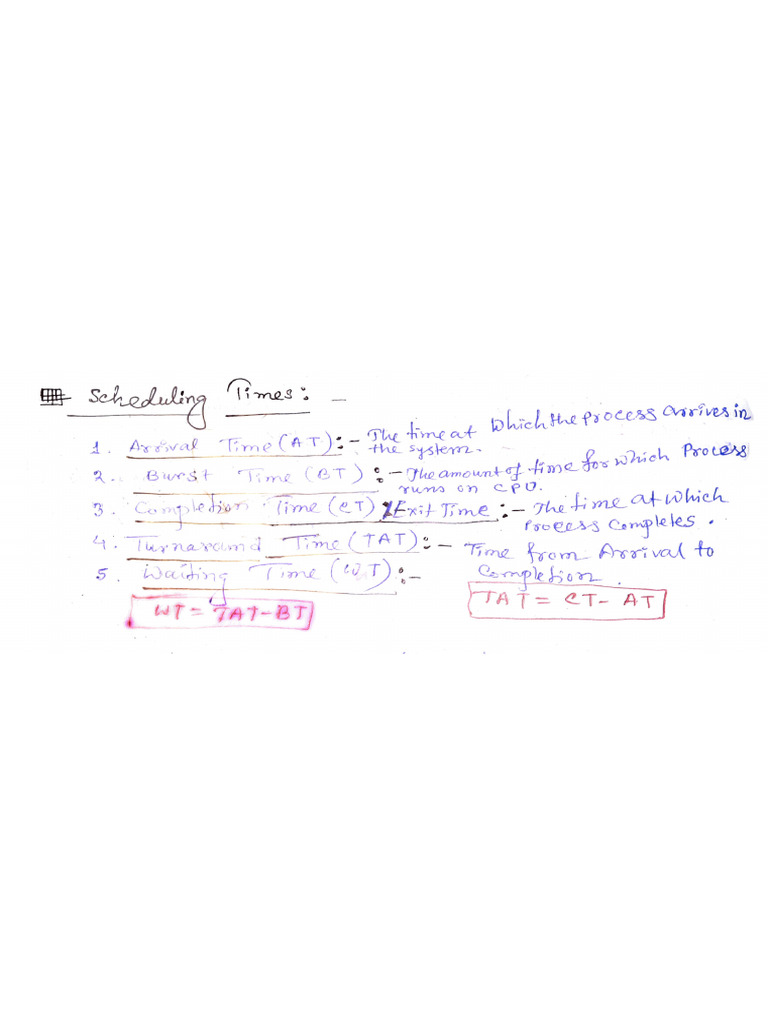 Scheduling Times: -
1. Arrival Time (AT) :- The time at which the process arrives in
the system.
2. Burst Time (BT) :- The amount of time for which Process
runs on CPU.
3. Completion Time (CT) / Exit Time :- The time at which
Process Completes.
4. Turnaround Time (TAT) :- Time from Arrival to
Completion.
5. Waiting Time (W.T) :-
TAT = CT - AT
WT = TAT - BT